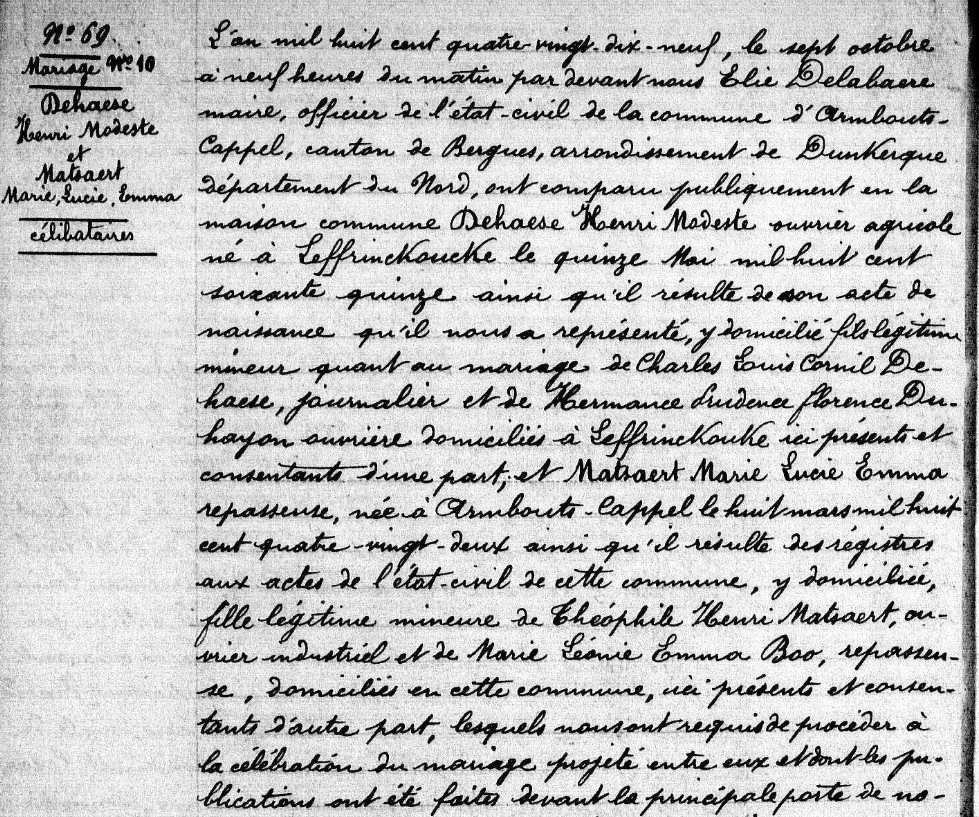 Nº 69.
Mariage Nº 10
Dehaese
Henri Modeste
et
Matsaert
Marie, Lucie, Emma
célibataires
L'an mil huit cent quatre-vingt-dix-neuf, le sept octobre
à neuf heures du matin par devant nous Elie Delabaere
maire, officier de l'état-civil de la commune d'Armbouts-
Cappel, canton de Bergues, arrondissement de Dunkerque
département du Nord, ont comparu publiquement en la
maison commune Dehaese Henri Modeste ouvrier agricole
né à Leffrinckoucke le quinze Mai mil huit cent
soixante quinze ainsi qu'il résulte de son acte de
naissance qu'il nous a représenté, y domicilié fils légitime
mineur quant au mariage de Charles Louis Cornil De-
haese, journalier et de Hermance Prudence florence Du-
hayon ouvrière domiciliés à Leffrinckouke ici présents et
consentants d'une part; et Matsaert Marie Lucie Emma
repasseuse, née à Armbouts-Cappel le huit mars mil huit
cent quatre-vingt-deux ainsi qu'il résulte des régistres
aux actes de l'état-civil de cette commune, y domiciliée,
fille légitime mineure de Théophile Henri Matsaert, ou-
vrier industriel et de Marie Léonie Emma Boo, repasseu-
se, domiciliés en cette commune, ici présents et consen-
tants d'autre part, lesquels nous ont requis de procéder à
la célébration du mariage projeté entre eux et dont les pu-
blications ont été faites devant la principale porte de no-